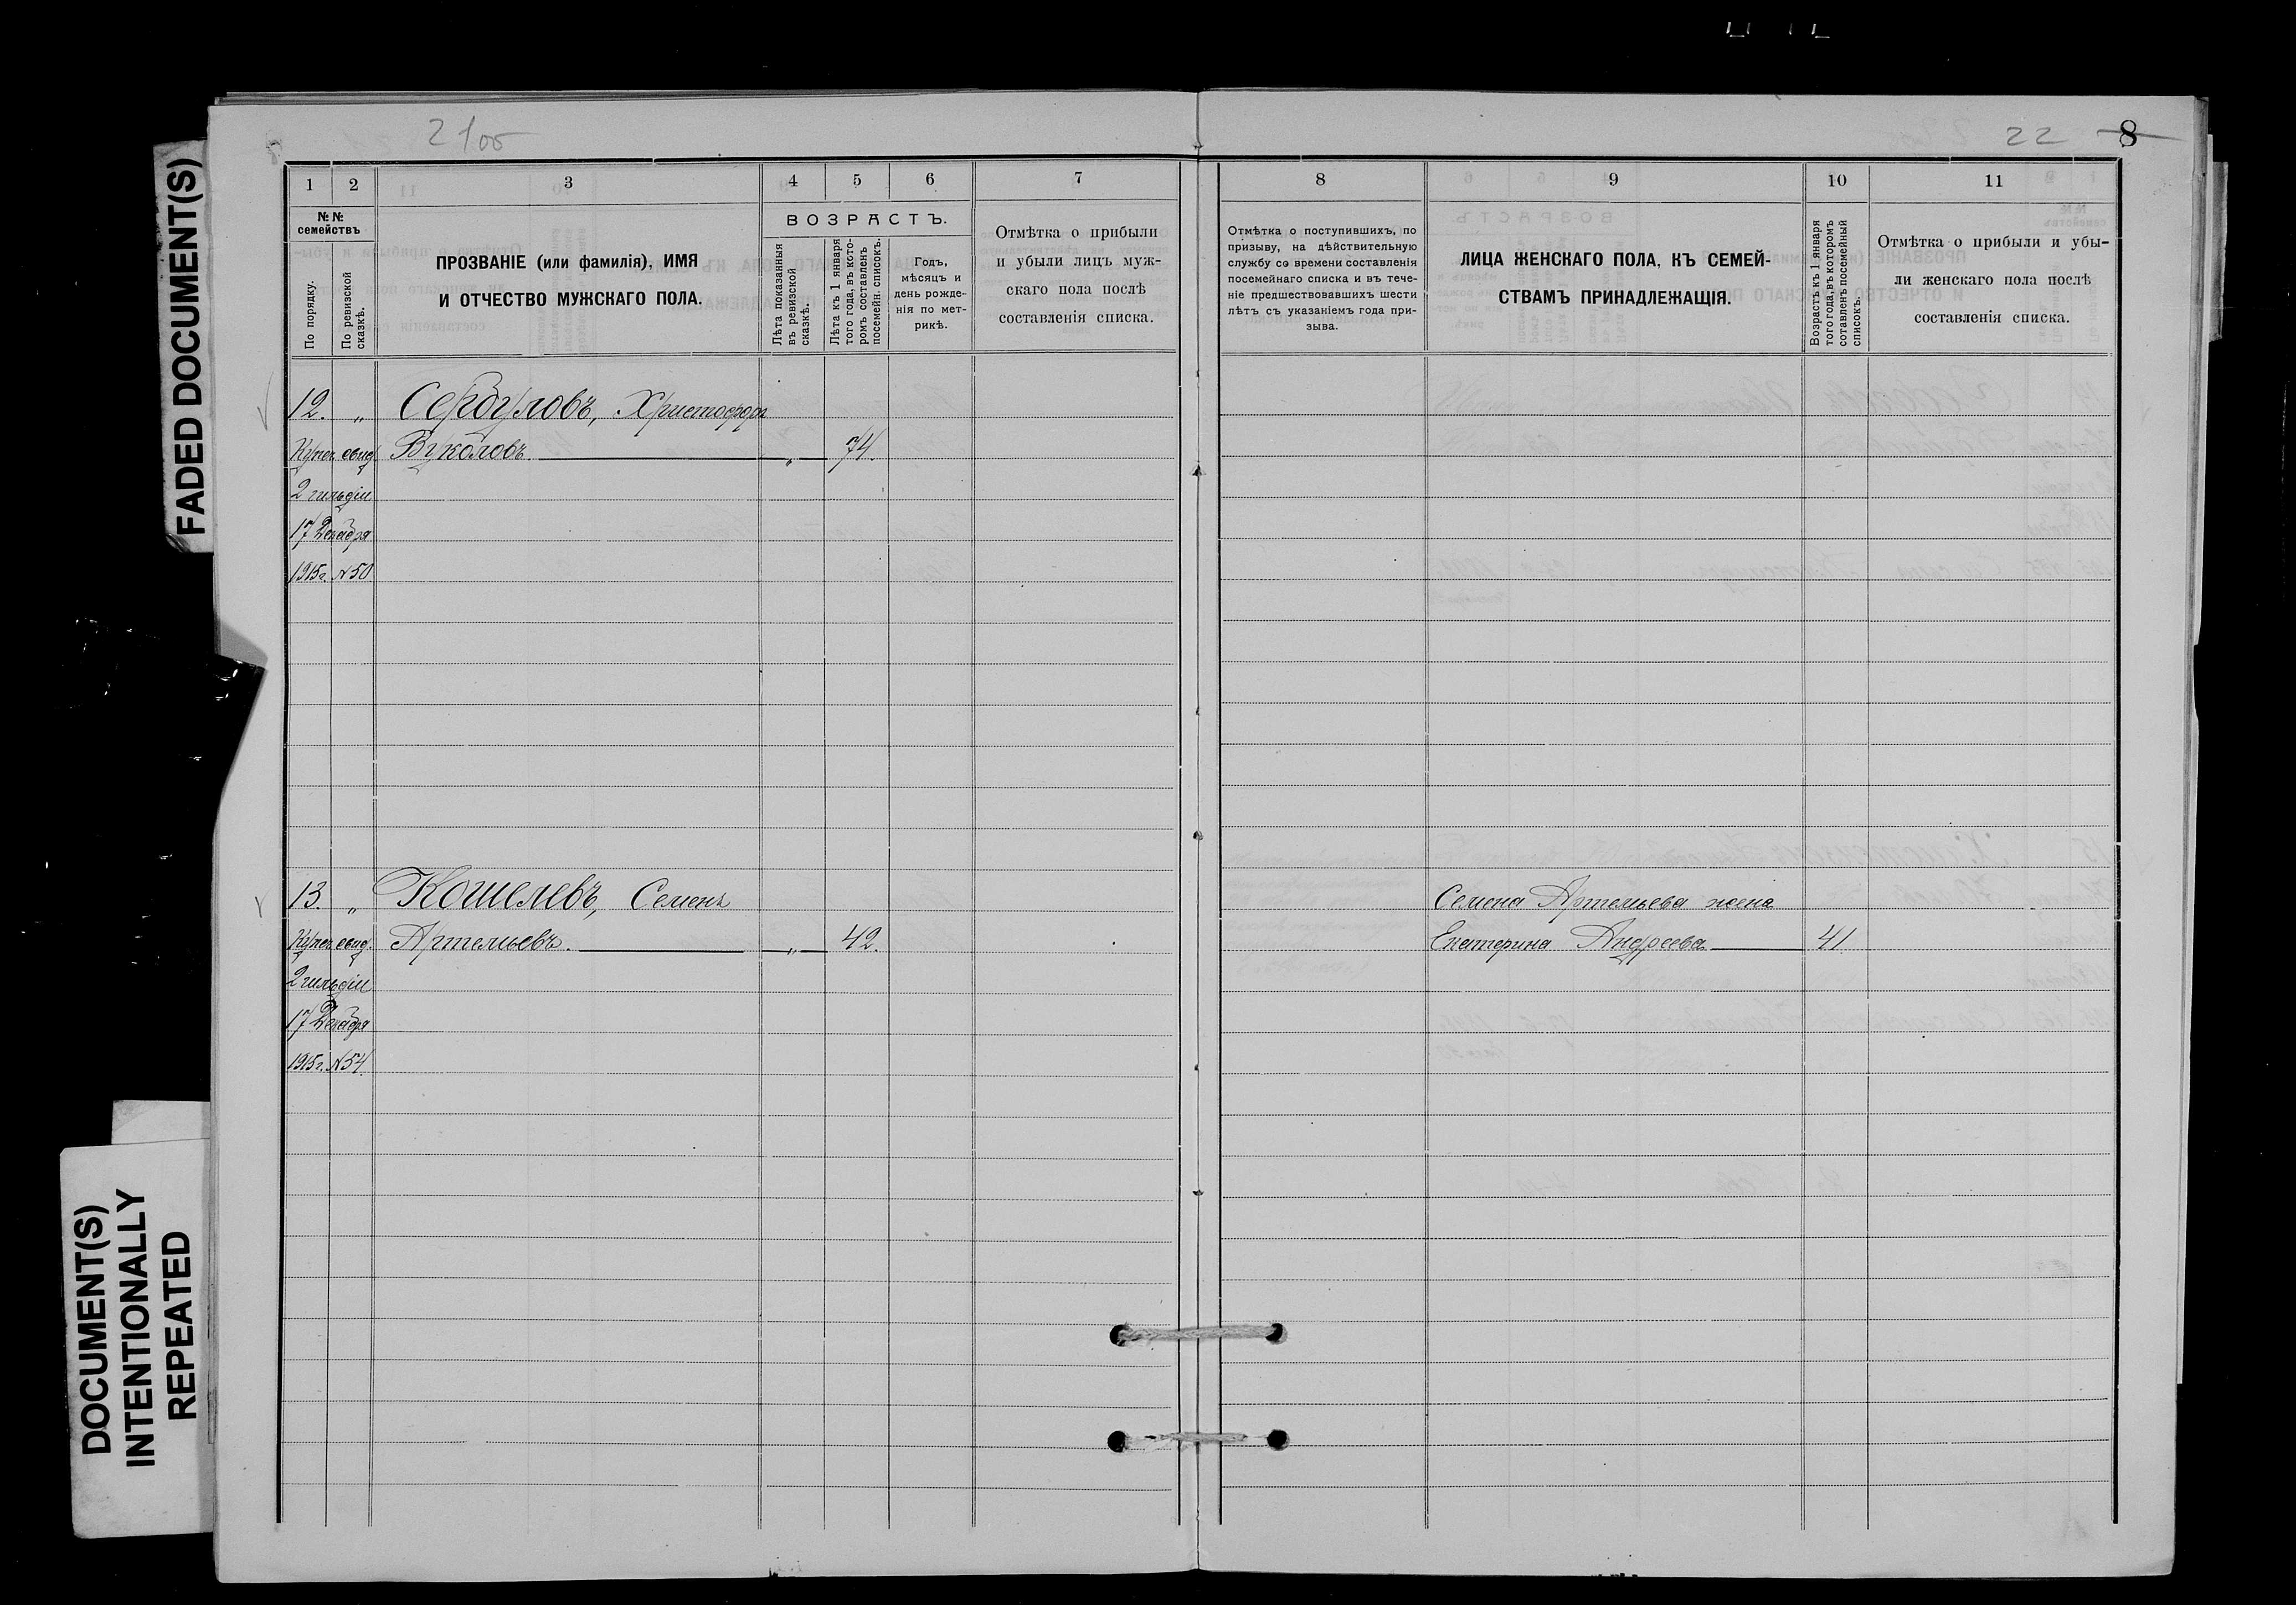 FADED DOCUMENT(S)
DOCUMENT(S)
INTENTIONALLY
REPEATED
21об
1 2 3 4 5 6 7
№№ семействъ
По порядку.
По ревизской сказкѣ.
ПРОЗВАНІЕ (или фамилія), ИМЯ
И ОТЧЕСТВО МУЖСКАГО ПОЛА.
ВОЗРАСТЪ.
Лѣта показанныя
въ ревизской
сказкѣ.
Лѣта къ 1 января
того года, въ кото-
ромъ составленъ
посемейн. списокъ.
Годъ,
мѣсяцъ и
день рожде-
нія по мет-
рикѣ.
Отмѣтка о прибыли
и убыли лицъ муж-
скаго пола послѣ
составленія списка.
12. „ Сербуловъ, Христофоръ
Купеч. свид. Вуколовъ. „ 74.
2 гильдіи
17 Декабря
1915г. №50
13. „ Кошелевъ, Семенъ
Купеч. свид. Артемьевъ. „ 42.
2 гильдіи
17 Декабря
1915г. №54
22 8
8 9 10 11
Отмѣтка о поступившихъ, по
призыву, на дѣйствительную
службу со времени составленія
посемейнаго списка и въ тече-
ніе предшествовавшихъ шести
лѣтъ съ указаніемъ года при-
зыва.
ЛИЦА ЖЕНСКАГО ПОЛА, КЪ СЕМЕЙ-
СТВАМЪ ПРИНАДЛЕЖАЩІЯ.
Возрастъ къ 1 января
того года, въ которомъ
составленъ посемейный
списокъ.
Отмѣтка о прибыли и убы-
ли женскаго пола послѣ
составленія списка.
Семена Артемьева жена
Екатерина Андреева 41